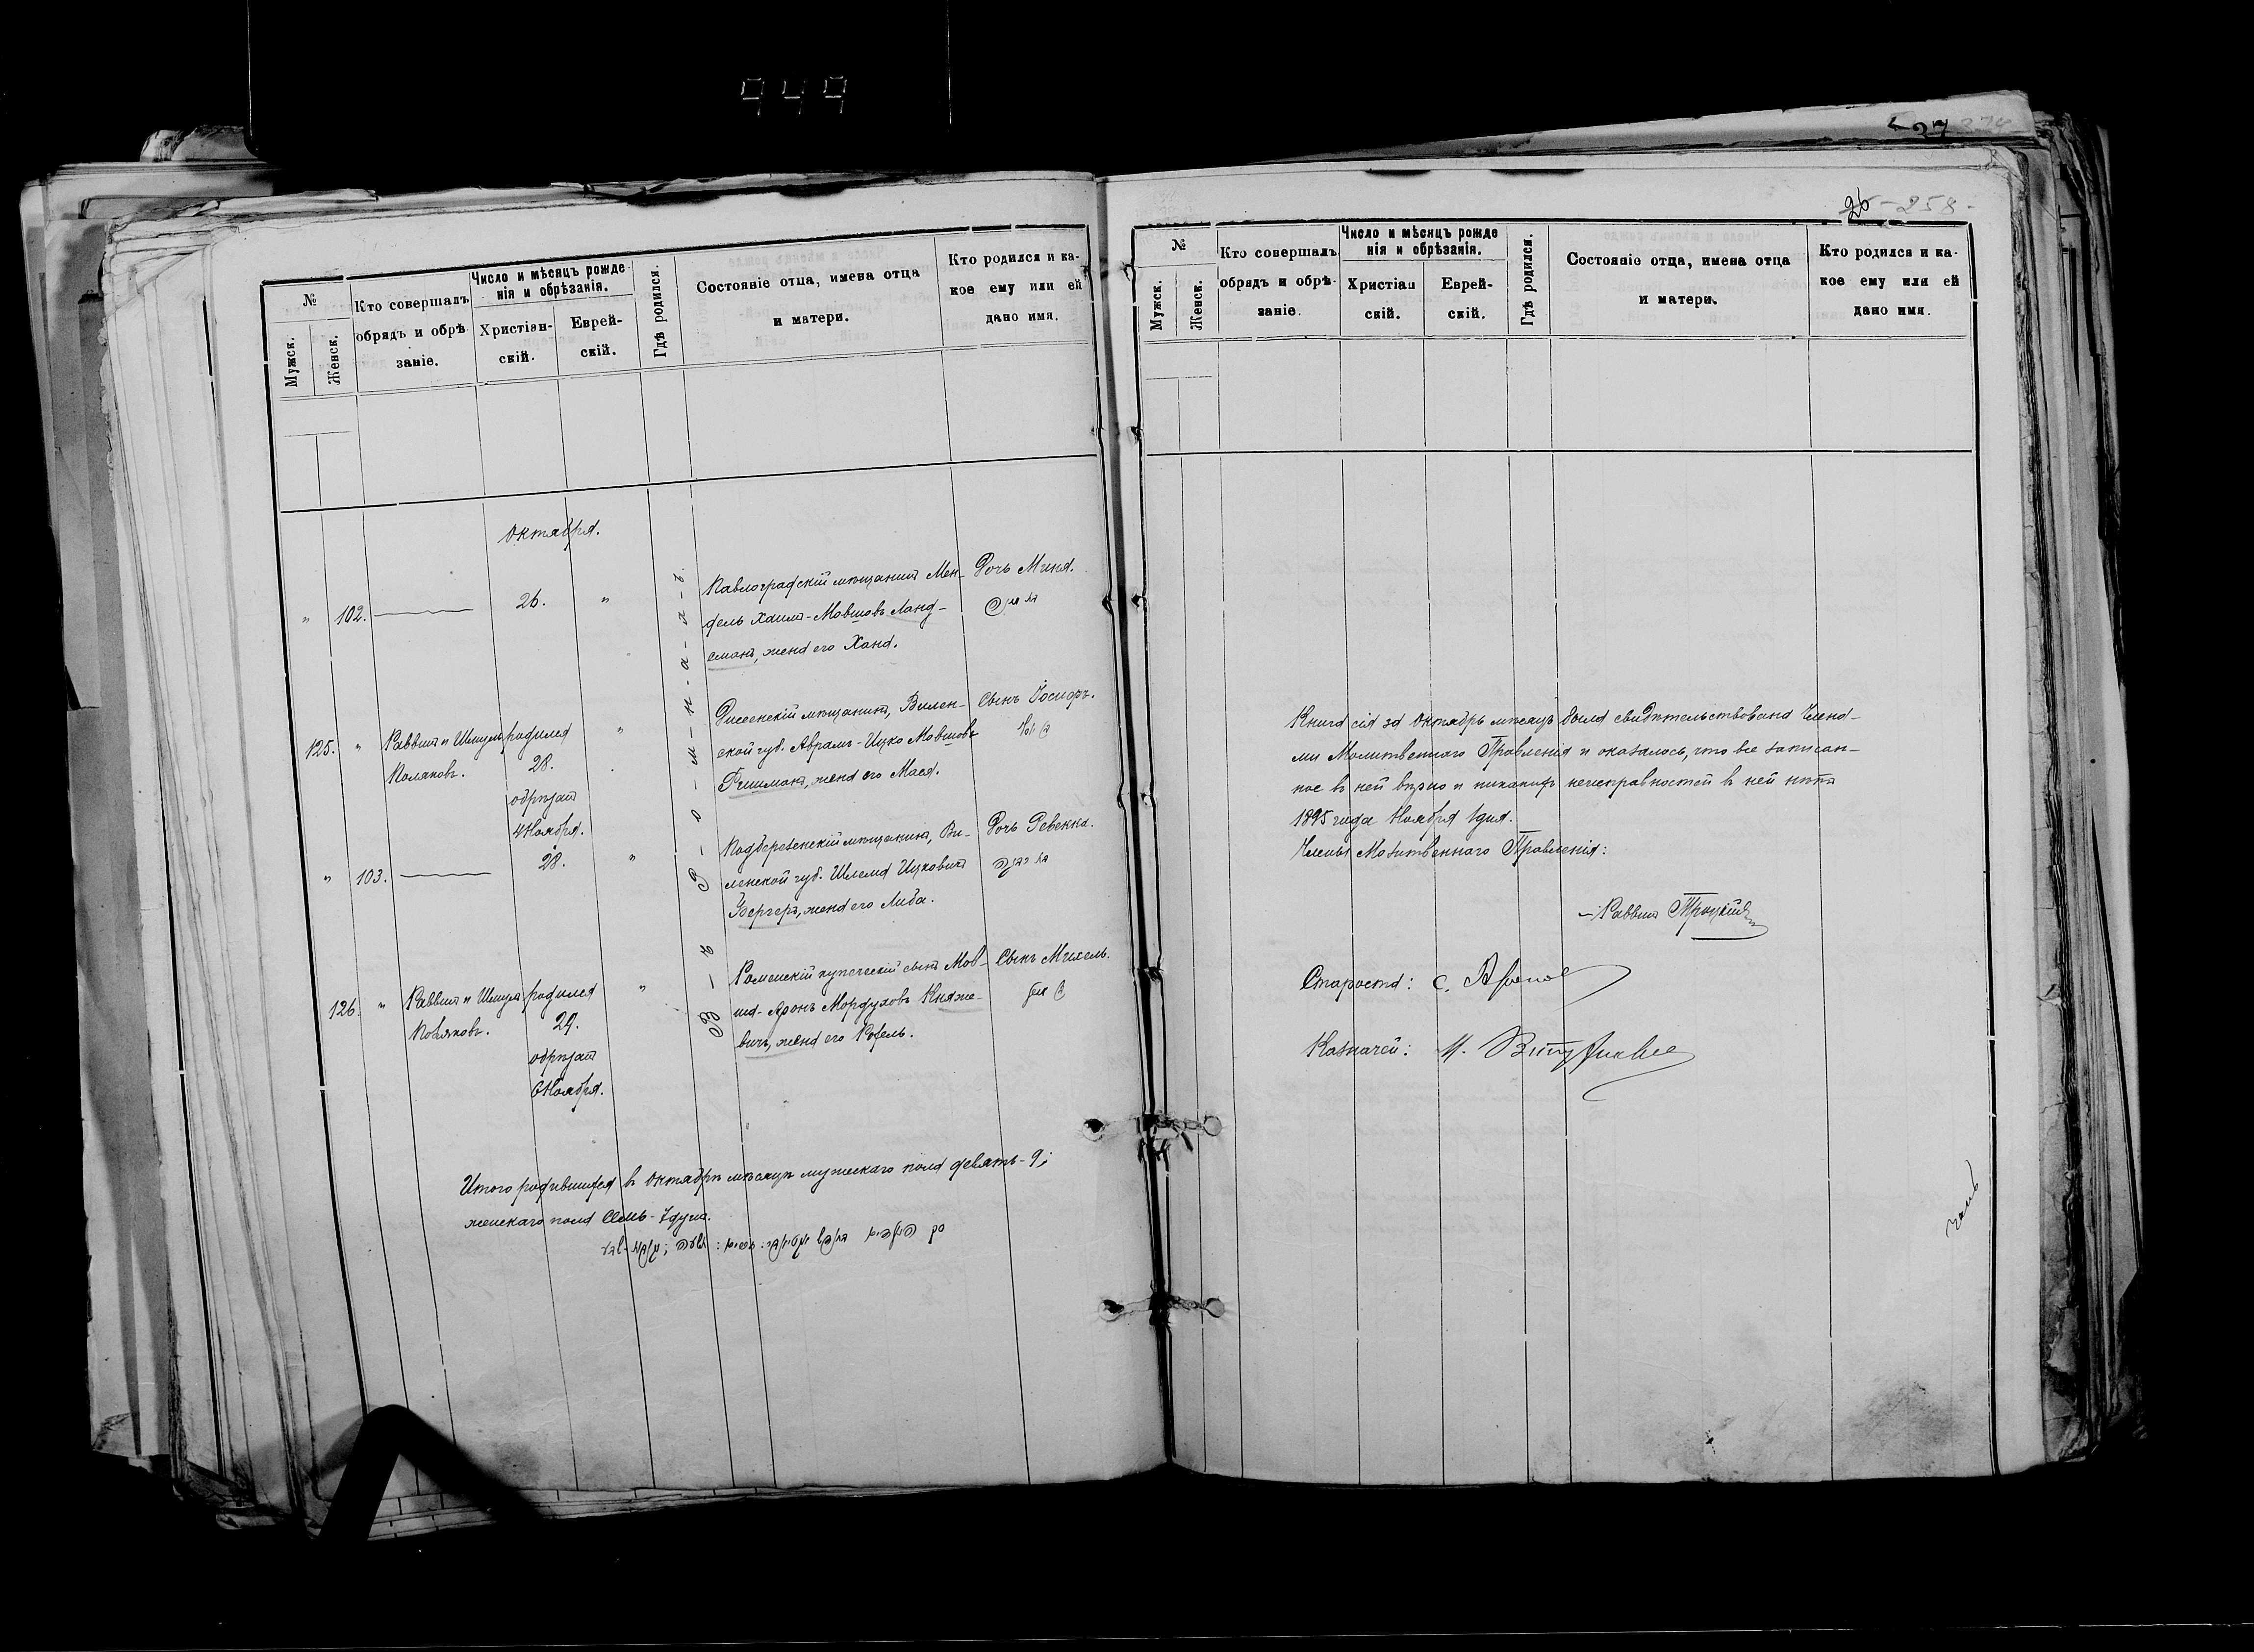 949
27
№
Мужск.
Женск.
Кто совершалъ
обрядъ и обрѣ
заніе.
Число и мѣсяцъ рожде
нія и обрѣзанія.
Христіан-
скій.
Еврей-
скій.
Гдѣ родился.
Состояніе отца, имена отца
и матери.
Кто родился и ка-
кое ему или ей
дано имя.
Октября.
" 102. 26. "
Павлоградскій мѣщанинъ Мен-
дель Хаимъ-Мовшовъ Ланд-
сманъ, жена его Хана.
Дочь Миня.
125. " Раввинъ и Шмуль
Поляковъ.
родился
28.
обрѣзанъ
4 Ноября.
"
Дисенскій мѣщанинъ, Вилен-
ской губ. Абрамъ-Ицко Мовшовъ
Фишманъ, жена его Мася.
Сынъ Іосифъ.
" 103. 28. "
Подберезенскій мѣщанинъ, Ви-
ленской губ. Шлема Ицковичъ
Бергеръ, жена его Либа.
Дочь Ревекка.
126. " Раввинъ и Шмуль
Поляковъ.
родился
29.
обрѣзанъ
6 Ноября.
"
Роменскій купеческій сынъ Мов-
ша-Аронъ Мордуховъ Княже-
вичъ, жена его Рохель.
Сынъ Михель.
Итого родившихся въ Октябрѣ мѣсяцѣ мужескаго пола девять-9;
женскаго пола семь-7 душъ.
26 - 258 -
№
Мужск.
Женск.
Кто совершалъ
обрядъ и обрѣ-
заніе.
Число и мѣсяцъ рожде
нія и обрѣзанія.
Христіан
скій.
Еврей-
скій.
Гдѣ родился.
Состояніе отца, имена отца
и матери.
Кто родился и ка-
кое ему или ей
дано имя.
Книга сія за Октябрь мѣсяцъ была свидѣтельствована Члена-
ми Молитвеннаго Правленія и оказалось, что все записан-
ное въ ней вѣрно и никакихъ неисправностей въ ней нѣтъ
1895 года Ноября 1 дня.
Члены Молитвеннаго Правленія:
Раввинъ Троцкій
Староста: С.
Казначей: М.